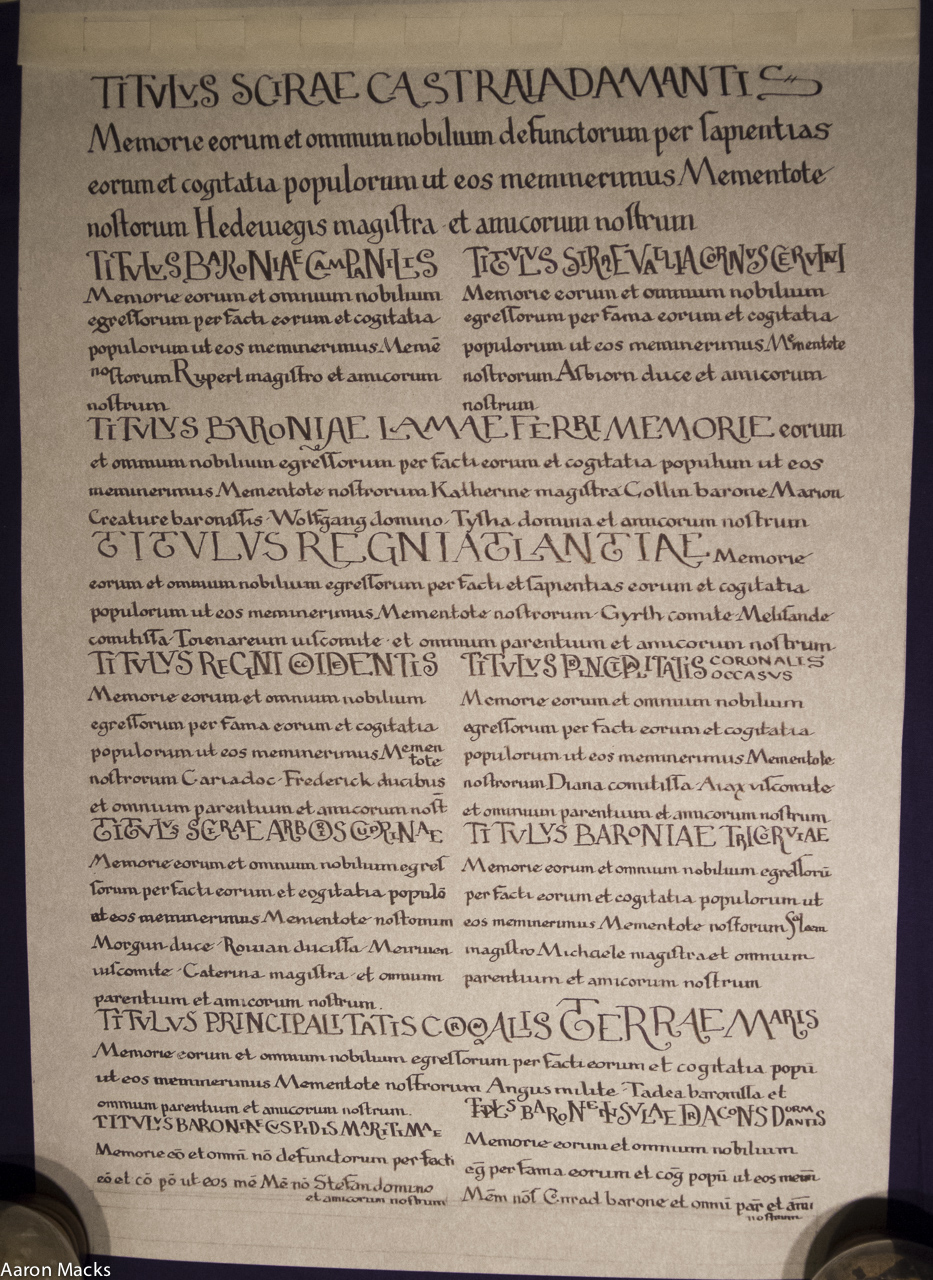 TITVLVS SCIRAE CASTRAIADAMANTIS
Memorie eorum et omnium nobilium defunctorum per sapientias
eorum et cogitatia populorum ut eos meminerimus Mementote
nostorum Hedewegis magistra et amicorum nostrum
TITVLVS BARONIAE CAMPANILIS
Memorie eorum et omnium nobilium
egressorum per facti eorum et cogitatia
populorum ut eos meminerimus Memē
nostorum Rypert magistro et amicorum
nostrum
TITVLVS CORNVS CERVINI
Memorie eorum et omnium nobilium
egressorum per fama eorum et cogitatia
populorum ut eos meminerimus Mementote
nostrorum Asbiorn duce et amicorum
nostrum
TITVLVS BARONIAE LAMAE FERRI MEMORIE eorum
et omnium nobilium egressorum per facti eorum et cogitatia ut eos
meminerimus Mementote nostrorum Katherine magistra Collin barone Marion
Creature baronissis Wolfgang domino Tysha domina et amicorum nostrum
TITVLVS REGNI ATLANTIAE Memorie
eorum et omnium nobilium egressorum per facti et sapientias eorum et cogitatia
populorum ut eos meminerimus Mementote nostrorum Gyrth comite Melisande
comitissa Toirenareum viscomite et omnium parentium et amicorum nostrum
TITVLVS REGNI OCIDENTIS
Memorie eorum et omnium nobilium
egressorum per fama eorum et cogitatia
populorum ut eos meminerimus Mementote
nostrorum Cariadoc Frederick ducibus
et omnium parentium et amicorum nost̄
TITVLVS PRINCIPALITATIS CORONALIS OCCASVS
Memorie eorum et omnium nobilium
egressorum per facti eorum et cogitatia
populorum ut eos meminerimus Mementote
nostrorum Diana comitissa Aiax viscomite
et omnium parentium et amicorum nostrum
TITVLVS SCIRAE ARBOS
Memorie eorum et omnium nobilium egres
sorum per facti eorum et cogitatia populō
ut eos meminerimus Mementote nostorum
Morgun duce Rowan ducissa Meirwen
viscomite Caterina magistra et omnium
parentium et amicorum nostrum
TITVLVS BARONIAE TRICERVIAE
Memorie eorum et omnium nobilium egressorū
per facti eorum et cogitatia populorum ut
eos meminerimus Mementote nostorum
magistro Michaele magistra et omnium
parentium et amicorum nostrum
TITVLVS PRINCIPALITATIS CORONALIS TERRAE MARIS
Memorie eorum et omnium nobilium egressorum per facti eorum et cogitatia popū
ut eos meminerimus Mementote nostrorum Angus milite Tadea baronissa et
omnium parentium et amicorum nostrum
TITVLVS BARONIAE CVSPIDIS MARITIMAE
Memorie eō et omnī nō defunctorum per facti
eō et cō pō ut eos mē Mē nō Stefan domino
et amicorum nostrum
BARONIE INSVLAE DRACONIS DORMANTIS
Memorie eorum et omnium nobilium
eḡ per fama eorum et cōg popū ut eos mem̄
Mēm nōs Conrad barone et omnī par̄ et amī
nostrum
Aaron Macks